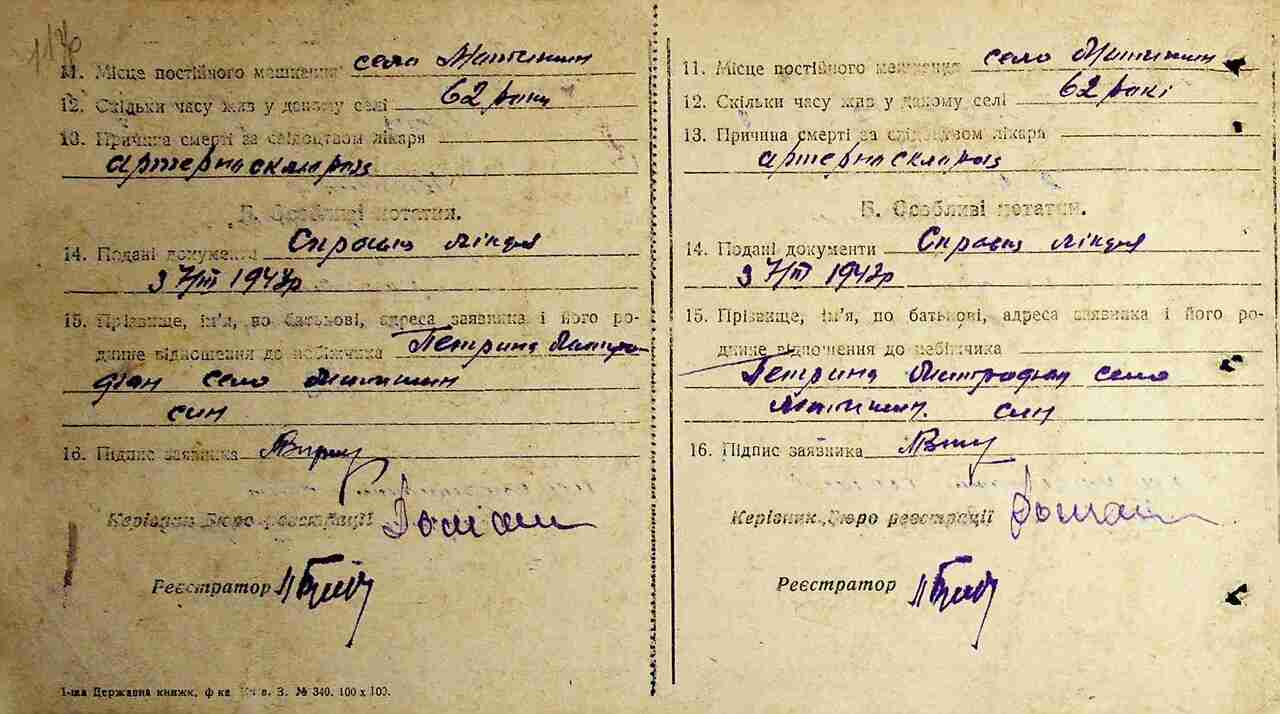 11. Місце постійного мешкання село
12. Скільки часу жив у даному селі 62 роки
13. Причина смерті за свідоцтвом лікаря
артериосклороз
Б. Особливі нотатки.
14. Подані документи Справка
з 7/III 194 р
15. Прізвище, ім'я, по батькові, адреса заявника і його ро-
динне відношення до небіжчика Петрина Митро-
фан село
син
16. Підпис заявника
Керівник Бюро реєстрації
Реєстратор
1-ша Державна книжк. ф-ка З. № 340. 100 х 100.
11. Місце постійного мешкання село
12. Скільки часу жив у даному селі 62 рокі
13. Причина смерті за свідоцтвом лікаря
артериосклороз
Б. Особливі нотатки.
14. Подані документи Справка
з 7/III 194 р
15. Прізвище, ім'я, по батькові, адреса заявника і його ро-
динне відношення до небіжчика
Петрина Митрофан село
син
16. Підпис заявника
Керівник Бюро реєстрації
Реєстратор